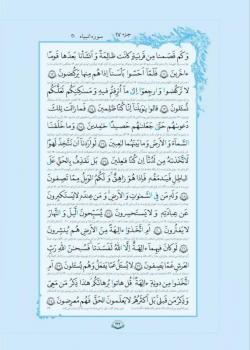 جزء ۱۷ سوره انبیاء
وَكَمْ قَصَمْنَا مِن قَرْيَةٍ كَانَتْ ظَالِمَةً وَأَنشَأْنَا بَعْدَهَا قَوْمًا
ءَاخَرِينَ ⑪ فَلَمَّآ أَحَسُّوا۟ بَأْسَنَآ إِذَا هُم مِّنْهَا يَرْكُضُونَ ⑫
لَا تَرْكُضُوا۟ وَٱرْجِعُوٓا۟ إِلَىٰ مَآ أُتْرِفْتُمْ فِيهِ وَمَسَٰكِنِكُمْ لَعَلَّكُمْ
تُسْـَٔلُونَ ⑬ قَالُوا۟ يَٰوَيْلَنَآ إِنَّا كُنَّا ظَٰلِمِينَ ⑭ فَمَا زَالَت تِّلْكَ
دَعْوَىٰهُمْ حَتَّىٰ جَعَلْنَٰهُمْ حَصِيدًا خَٰمِدِينَ ⑮ وَمَا خَلَقْنَا
ٱلسَّمَآءَ وَٱلْأَرْضَ وَمَا بَيْنَهُمَا لَٰعِبِينَ ⑯ لَوْ أَرَدْنَآ أَن نَّتَّخِذَ لَهْوًا
لَّٱتَّخَذْنَٰهُ مِن لَّدُنَّآ إِن كُنَّا فَٰعِلِينَ ⑰ بَلْ نَقْذِفُ بِٱلْحَقِّ عَلَى
ٱلْبَٰطِلِ فَيَدْمَغُهُۥ فَإِذَا هُوَ زَاهِقٌ وَلَكُمُ ٱلْوَيْلُ مِمَّا تَصِفُونَ
⑱ وَلَهُۥ مَن فِى ٱلسَّمَٰوَٰتِ وَٱلْأَرْضِ وَمَنْ عِندَهُۥ لَا يَسْتَكْبِرُونَ
عَنْ عِبَادَتِهِۦ وَلَا يَسْتَحْسِرُونَ ⑲ يُسَبِّحُونَ ٱلَّيْلَ وَٱلنَّهَارَ
لَا يَفْتُرُونَ ⑳ أَمِ ٱتَّخَذُوٓا۟ ءَالِهَةً مِّنَ ٱلْأَرْضِ هُمْ يُنشِرُونَ
㉑ لَوْ كَانَ فِيهِمَآ ءَالِهَةٌ إِلَّا ٱللَّهُ لَفَسَدَتَا فَسُبْحَٰنَ ٱللَّهِ رَبِّ
ٱلْعَرْشِ عَمَّا يَصِفُونَ ㉒ لَا يُسْـَٔلُ عَمَّا يَفْعَلُ وَهُمْ يُسْـَٔلُونَ ㉓ أَمِ
ٱتَّخَذُوا۟ مِن دُونِهِۦٓ ءَالِهَةً قُلْ هَاتُوا۟ بُرْهَٰنَكُمْ هَٰذَا ذِكْرُ مَن مَّعِىَ
وَذِكْرُ مَن قَبْلِى بَلْ أَكْثَرُهُمْ لَا يَعْلَمُونَ ٱلْحَقَّ فَهُم مُّعْرِضُونَ ㉔
۳۲۳